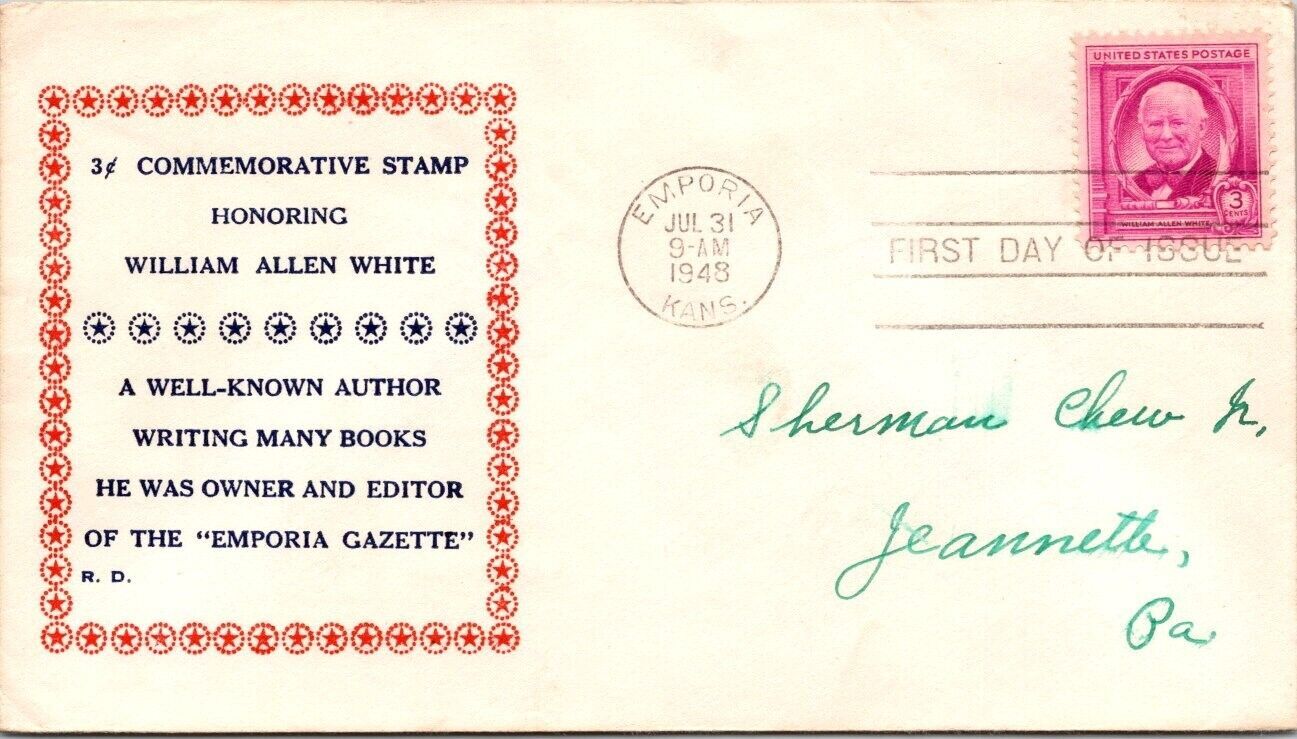 3¢ COMMEMORATIVE STAMP
HONORING
WILLIAM ALLEN WHITE
A WELL-KNOWN AUTHOR
WRITING MANY BOOKS
HE WAS OWNER AND EDITOR
OF THE “EMPORIA GAZETTE”
R. D.
EMPORIA
JUL 31
9-AM
1948
KANS.
UNITED STATES POSTAGE
3
CENTS
WILLIAM ALLEN WHITE
FIRST DAY OF ISSUE
Sherman Chew Jr,
Jeannette,
Pa